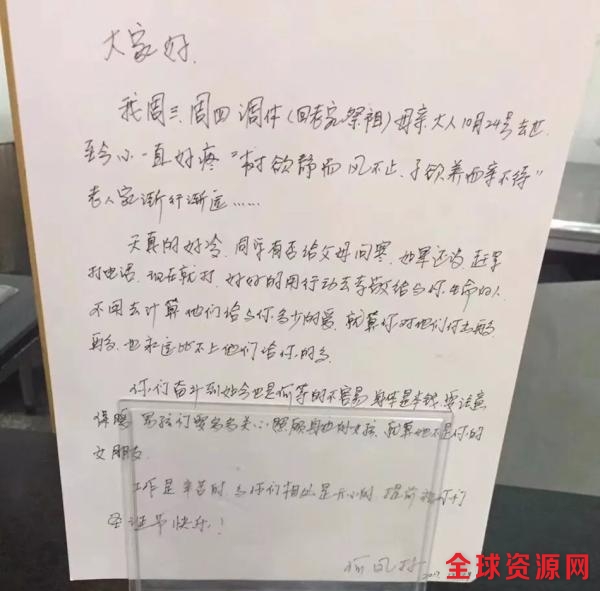 大家好.
我周三.周四调休(回老家祭祖)母亲大人10月24号去世
至今心一直好疼"树欲静而风不止.子欲养而亲不待"
老人家渐行渐远……
天真的好冷.同学有否给父母问寒.如果还没.赶紧
打电话.现在就打.好好的用行动去孝敬给与你生命的人
不用去计算他们给与你多少的爱.就算你对他们付出再多
再多.也永远比不上他们给你的多
你们奋斗到如今也是何等的不容易身体是本钱.要注意
保暖 男孩们要多多关心照顾身边的女孩.就算她不是你的
女朋友.
工作是辛苦的.与你们相处是开心的 提前祝你们
圣诞节快乐!
2017
全球资源网